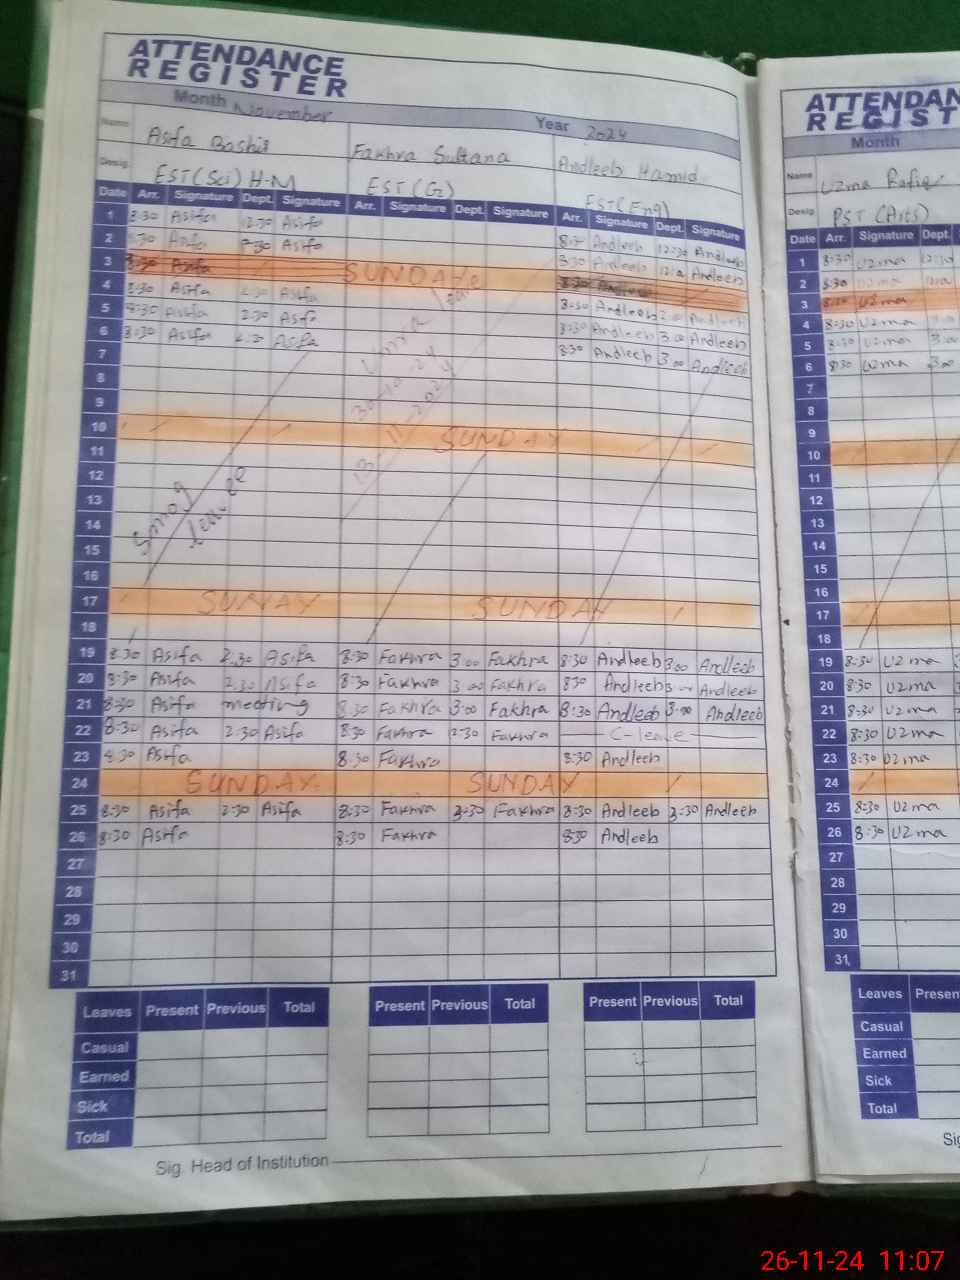 ATTENDANCE
REGISTER
Month November Year 2024
Name Asifa Bashir Fakhra Sultana Andleeb Hamid
Desig. EST(Sci) H-M EST(G) EST(Eng)
Date Arr. Signature Dept. Signature Arr. Signature Dept. Signature Arr. Signature Dept. Signature
1 8:30 Asifa 12:30 Asifa Andleeb 12:30 Andleeb
2 8:30 Asifa Asifa 8:30 Andleeb Andleeb
3 8:30 Asifa SUNDAY 8:30
4 8:30 Asifa 2:30 Asifa 8:30 Andleeb Andleeb
5 8:30 Asifa 2:30 Asifa 8:30 Andleeb 3:00 Andleeb
6 8:30 Asifa 2:30 Asifa 8:30 Andleeb 3:00 Andleeb
7
8
9
10 SUNDAY
11
12
13
14
15
16
Smog
leave
leave
30-10-24
2024
17 SUNAY SUNDAY
18
19 8:30 Asifa 2:30 Asifa 8:30 Fakhra 3:00 Fakhra 8:30 Andleeb 3:00 Andleeb
20 8:30 Asifa 2:30 Asifa 8:30 Fakhra 3:00 Fakhra 830 Andleeb 3:00 Andleeb
21 8:30 Asifa meeting 8:30 Fakhra 3:00 Fakhra 8:30 Andleeb 3:00 Andleeb
22 8:30 Asifa 2:30 Asifa 8:30 Fakhra 2:30 Fakhra C-leave
23 8:30 Asifa 8:30 Fakhra 8:30 Andleeb
24 SUNDAY SUNDAY
25 8:30 Asifa 2:30 Asifa 8:30 Fakhra 2:30 Fakhra 8:30 Andleeb 2:30 Andleeb
26 8:30 Asifa 8:30 Fakhra 830 Andleeb
27
28
29
30
31
Leaves Present Previous Total Present Previous Total Present Previous Total
Casual
Earned
Sick
Total
Sig. Head of Institution
ATTENDAN
REGIST
Month
Name Uzma Rafiq
Desig PST (Arts)
Date Arr. Signature Dept.
1 8:30 Uzma 12:30
2 8:30 Uzma
3 Uzma
4 8:30 Uzma
5 8:30 Uzma 3:00
6 8:30 Uzma 3:00
7
8
9
10
11
12
13
14
15
16
17
18
19 8:30 Uzma
20 8:30 Uzma
21 8:30 Uzma
22 8:30 Uzma
23 8:30 Uzma
24
25 8:30 Uzma
26 8:30 Uzma
27
28
29
30
31
Leaves Presen
Casual
Earned
Sick
Total
Sig
26-11-24 11:07